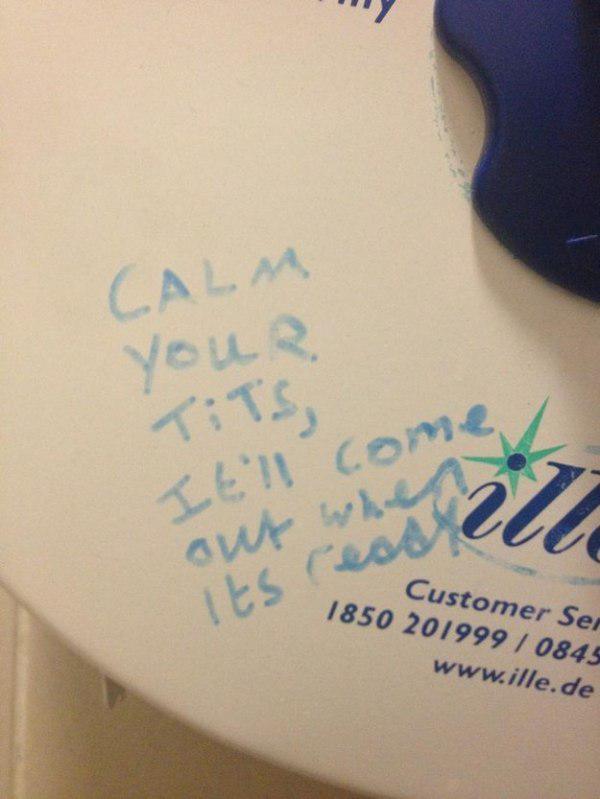 CALM
YOUR
TITS,
It'll come
out when
Its ready
ille
Customer Ser
1850 201999 / 0845
www.ille.de